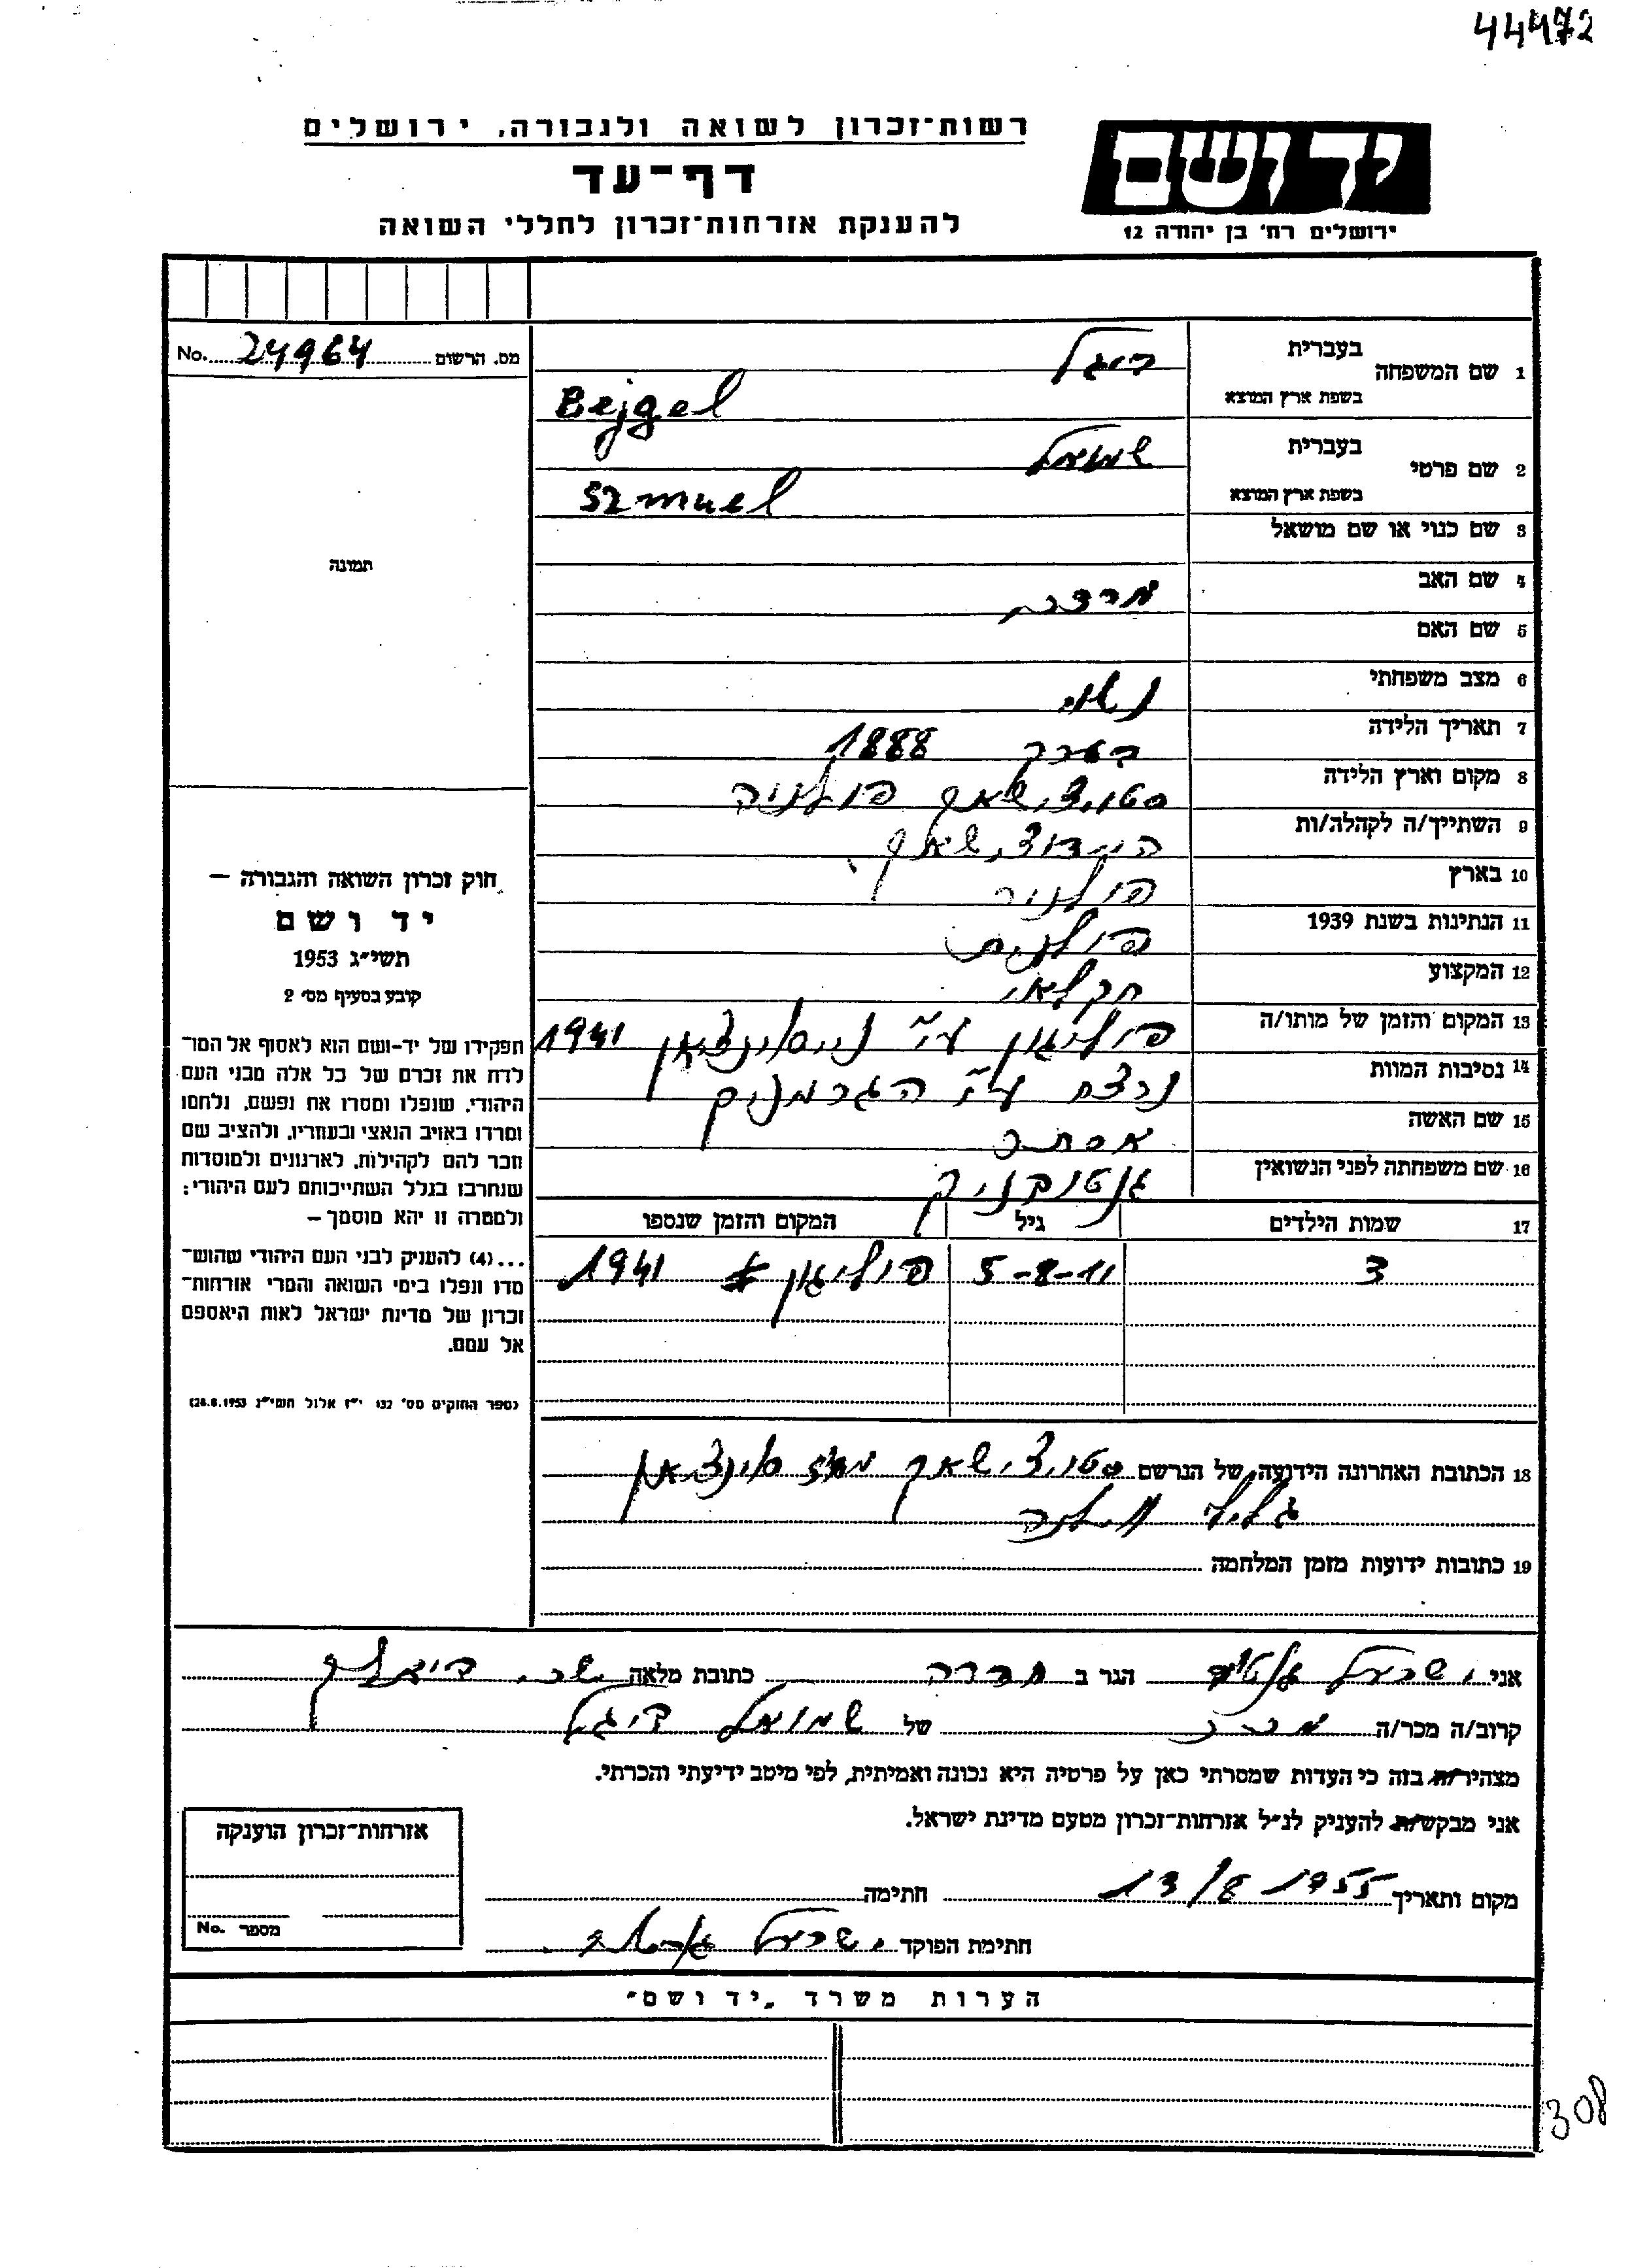 44472
רשות־זכרון לשואה ולגבורה, ירושלים
יד ושם
דף־עד
להענקת אזרחות־זכרון לחללי השואה
ירושלים רח' בן יהודה 12
מס. הרשום 24964 No.
1 שם המשפחה בעברית ביגל
בשפת ארץ המוצא Bejgel
2 שם פרטי בעברית שמואל
בשפת ארץ המוצא Szmuel
3 שם כנוי או שם מושאל
תמונה
4 שם האב מרדכי
5 שם האם
6 מצב משפחתי נשוי
7 תאריך הלידה בערך 1888
8 מקום וארץ הלידה פולניה
9 השתייך/ה לקהלה/ות
10 בארץ פולניה
11 הנתינות בשנת 1939 פולנית
12 המקצוע חקלאי
13 המקום והזמן של מותו/ה פוליגון ע"י 1941
14 נסיבות המוות נרצח ע"י הגרמנים
15 שם האשה אסתר
16 שם משפחתה לפני הנשואין
חוק זכרון השואה והגבורה –
יד ושם
תשי"ג 1953
קובע בסעיף מס' 2
תפקידו של יד־ושם הוא לאסוף אל המו־
לדת את זכרם של כל אלה מבני העם
היהודי, שנפלו ומסרו את נפשם, נלחמו
ומרדו באויב הנאצי ובעוזריו, ולהציב שם
וזכר להם לקהילות, לארגונים ולמוסדות
שנחרבו בגלל השתייכותם לעם היהודי;
ולמטרה זו יהא מוסמך –
...(4) להעניק לבני העם היהודי שהוש־
מדו ונפלו בימי השואה והמרי אזרחות־
זכרון של מדינת ישראל לאות היאספם
אל עמם.
(ספר החוקים מס' 132 י"ז אלול תשי"ג 28.8.1953)
17 שמות הילדים גיל המקום והזמן שנספו
3 5-8-11 פוליגון 1941
18 הכתובת האחרונה הידועה של הנרשם
גליל וילנה
19 כתובות ידועות מזמן המלחמה
אני ישראל הגר ב חדרה כתובת מלאה
קרוב/ה מכר/ה מכר של שמואל ביגל
מצהיר/ה בזה כי העדות שמסרתי כאן על פרטיה היא נכונה ואמיתית, לפי מיטב ידיעתי והכרתי.
אני מבקש/ת להעניק לנ"ל אזרחות־זכרון מטעם מדינת ישראל.
מקום ותאריך 13/8 1955 חתימה
חתימת הפוקד ישראל
אזרחות־זכרון הוענקה
מספר No.
הערות משרד "יד ושם"
308